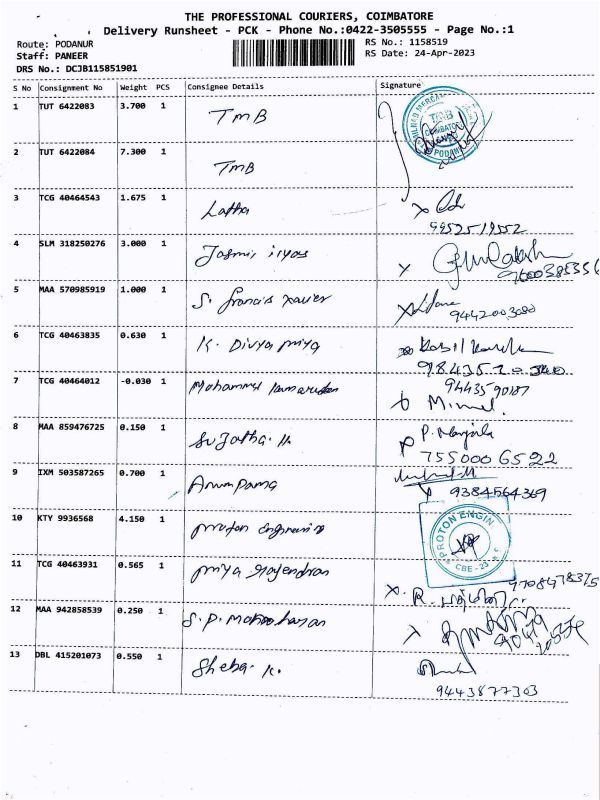 THE PROFESSIONAL COURIERS, COIMBATORE
Delivery Runsheet - PCK - Phone No.:0422-3505555 - Page No.:1
Route: PODANUR RS No.: 1158519
Staff: PANEER RS Date: 24-Apr-2023
DRS No.: DCJB115851901
S No Consignment No Weight PCS Consignee Details Signature
1 TUT 6422083 3.700 1 TMB
TMB
PODAN
2 TUT 6422084 7.300 1 TMB
3 TCG 40464543 1.675 1 Latha
9952519552
4 SLM 318250276 3.000 1 Jasmir iryas
9600385356
5 MAA 570985919 1.000 1 S. francis xavier
9442003080
6 TCG 40463835 0.630 1 K. Divya priya
7 TCG 40464012 -0.030 1 Mohammed Kamarudeen
9443590187
8 MAA 859476725 0.150 1 Sujatha. K
P. Manjula
7550006522
9 IXM 503587265 0.700 1 Anupama
9384564369
10 KTY 9936568 4.150 1 proton Engineering
PROTON ENGIN
CBE - 23
11 TCG 40463931 0.565 1 priya Rajendran
12 MAA 942858539 0.250 1 S. P. Manoharan
13 DBL 415201073 0.550 1 Sheba. K.
9443877303